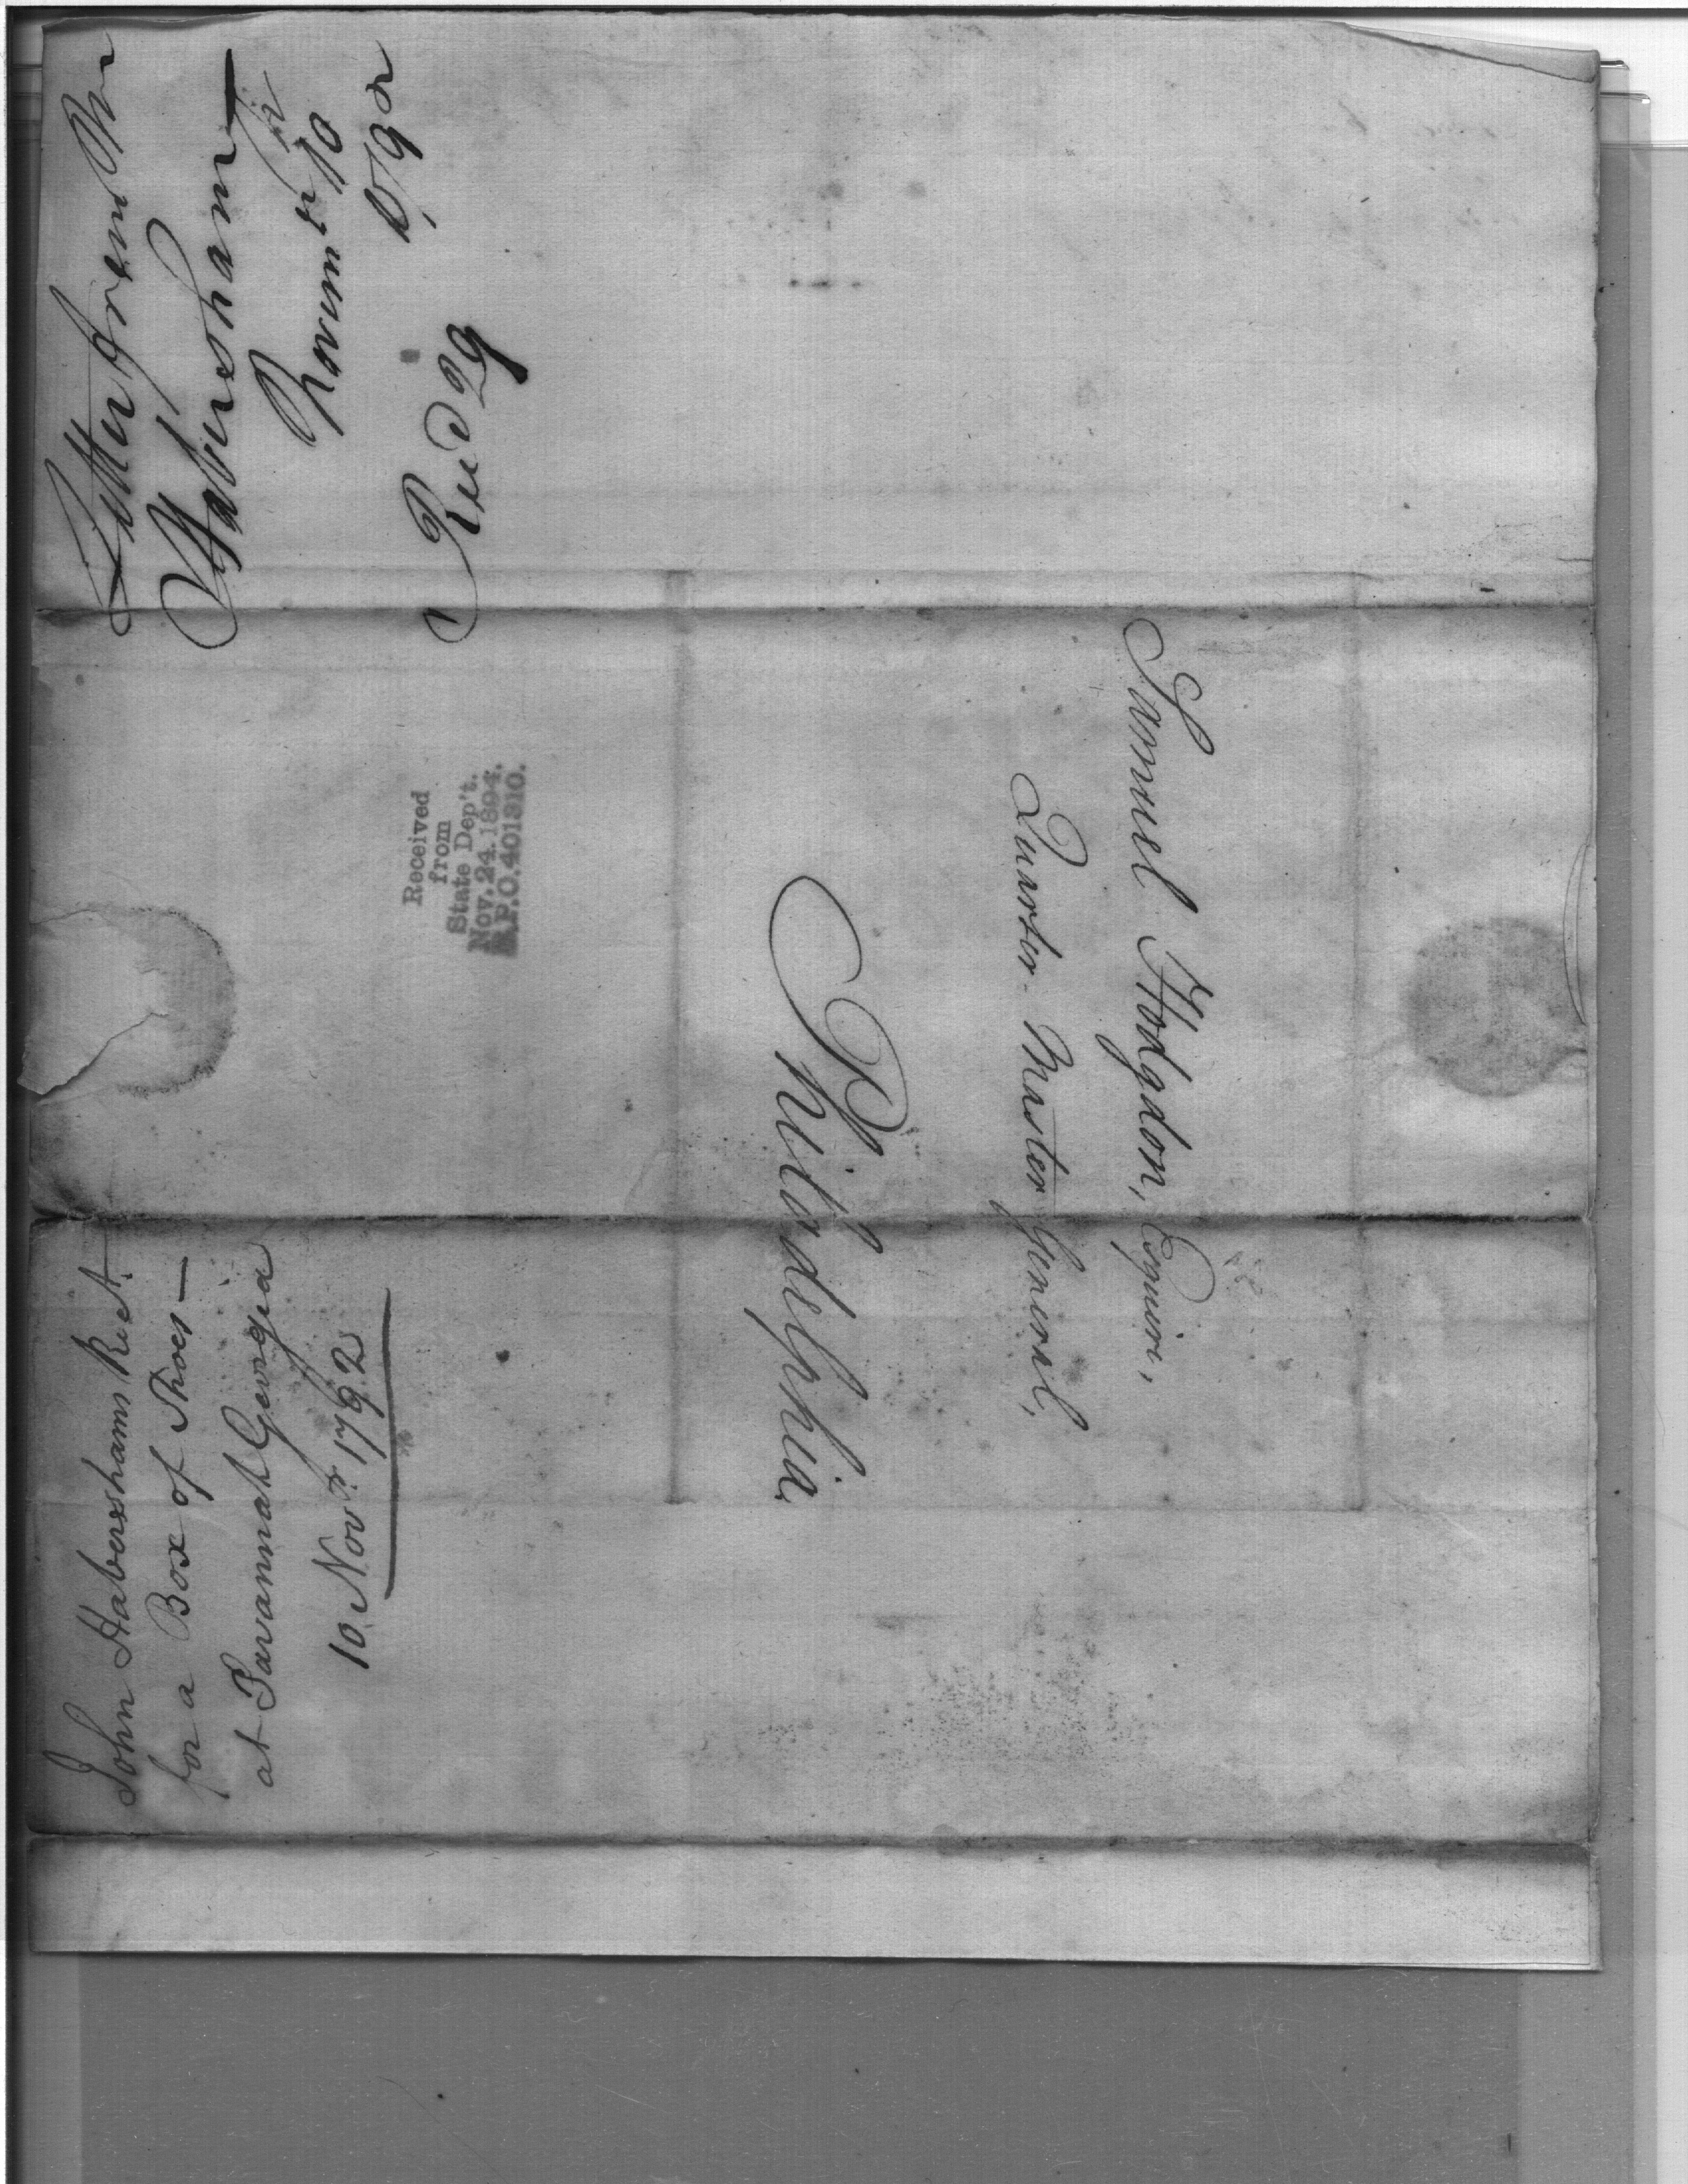 Samuel Hodgdon, Esquire,
Quarter-Master General,
Philadelphia
Letter from Mr
Habersham
Novembr 10th
1792
Recd 29
Received
from
State Dep't.
Nov. 24. 1894.
R.P.O. 401310.
John Habershams Rect.
for a Box of Shoes—
at Savannah Georgia
10 Novr. 1792